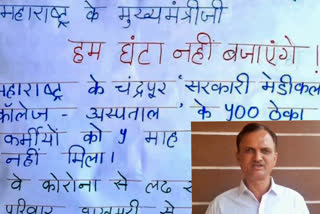 महाराष्ट्र के मुख्यमंत्रीजी
हम घंटा नहीं बजाएंगे !
महाराष्ट्र के चंद्रपुर 'सरकारी मेडीकल
कॉलेज - अस्पताल' के ५०० ठेका
कर्मीयों को ५ माह
नहीं मिला।
वे कोरोना से लढ
परिवार भुखमरी से